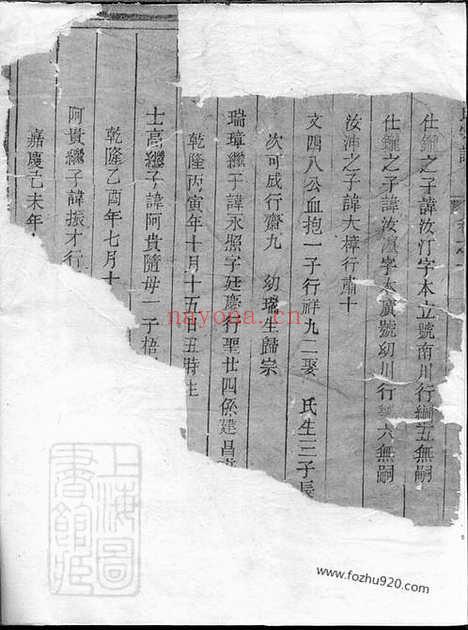 仕鏓之子諱汝汀字本立號南川行 五無嗣
仕 之子諱汝 字本廣號幼川行 六無嗣
汝沛之子諱大樟行肅十
文四八公血抱一子行祥九二娶 氏生三子長
次可成行齋九 幼瑞生歸宗
瑞璋繼子諱永照字廷慶行聖廿四係建昌
乾隆丙寅年十月十五日丑時生
士高繼子諱阿貴隨母一子梧
乾隆乙酉年七月十
阿貴繼子諱振才行
嘉慶己未年
上海圖書館藏
nayona.cn
www.fozhu920.com